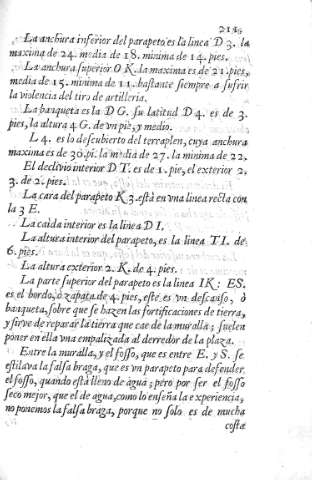 La anchura inferior del parapeto es la linea D 3. la
maxima de 24. media de 18. minima de 14. pies.
La anchura superior O K. la maxima es de 21. pies,
media de 15. minima de 11. bastante siempre a sufrir
la violencia del tiro de artilleria.
La banqueta es la D G. su latitud D 4. es de 3.
pies, la altura 4 G. de vn piè, y medio.
L 4. es lo descubierto del terraplen, cuya anchura
maxima es de 30. pi. la media de 27. la minima de 22.
El declivio interior D T. es de 1. pie, el exterior 2.
3. de 2. pies.
La cara del parapeto K 3. està en vna linea recta con
la 3 E.
La caida interior es la linea D I.
La altura interior del parapeto, es la linea T I. de
6. pies.
La altura exterior 2. K. de 4. pies.
La parte superior del parapeto es la linea I K: ES.
es el bordo, ò zapata de 4. pies, este es vn descanso, ò
banqueta, sobre que se hazen las fortificaciones de tierra,
y sirve de reparar la tierra que cae de la muralla; suelen
poner en ella vna empalizada al derredor de la plaza.
Entre la muralla, y el fosso, que es entre E. y S. se
estilava la falsa braga, que es vn parapeto para defender
el fosso, quando està lleno de agua; pero por ser el fosso
seco mejor, que el de agua, como lo enseña la experiencia,
no ponemos la falsa braga, porque no solo es de mucha
costa